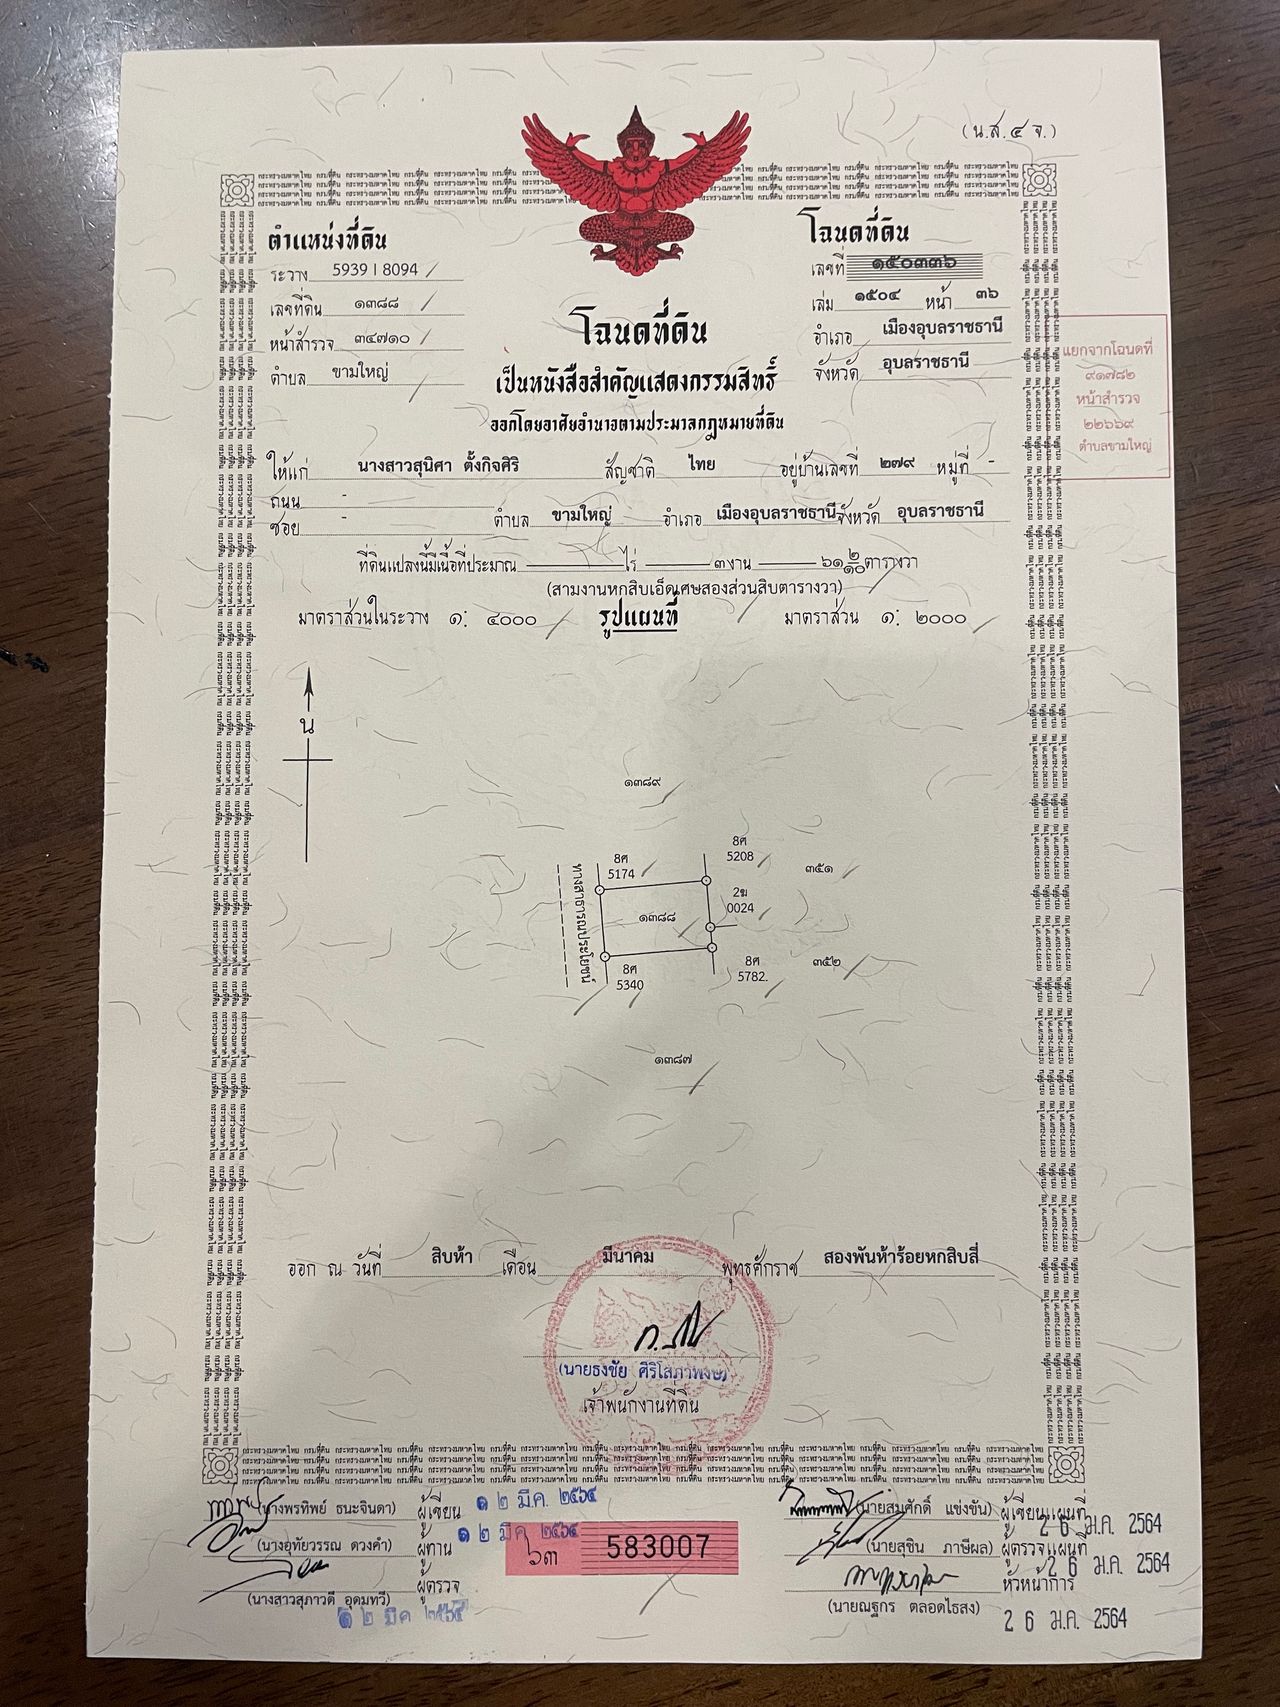 (น.ส.๔ จ.)
ตำแหน่งที่ดิน
ระวาง 5939 I 8094
เลขที่ดิน ๑๓๘๘
หน้าสำรวจ ๓๔๗๑๐
ตำบล ขามใหญ่
โฉนดที่ดิน
เลขที่ ๑๕๐๓๓๖
เล่ม ๑๕๐๔ หน้า ๓๖
อำเภอ เมืองอุบลราชธานี
จังหวัด อุบลราชธานี
แยกจากโฉนดที่
๙๑๗๘๒
หน้าสำรวจ
๒๒๖๖๙
ตำบลขามใหญ่
โฉนดที่ดิน
เป็นหนังสือสำคัญแสดงกรรมสิทธิ์
ออกโดยอาศัยอำนาจตามประมวลกฎหมายที่ดิน
ให้แก่ นางสาวสุนิศา ตั้งกิจศิริ สัญชาติ ไทย อยู่บ้านเลขที่ ๒๗๙ หมู่ที่ -
ถนน -
ซอย ตำบล ขามใหญ่ อำเภอ เมืองอุบลราชธานี จังหวัด อุบลราชธานี
ที่ดินแปลงนี้มีเนื้อที่ประมาณ ไร่ ๓ งาน ๖๑ ๒/๑๐ ตารางวา
(สามงานหกสิบเอ็ดเศษสองส่วนสิบตารางวา)
มาตราส่วนในระวาง ๑: ๔๐๐๐ รูปแผนที่ มาตราส่วน ๑: ๒๐๐๐
น
๑๓๘๙
8ศ
5174
8ศ
5208
๓๕๑
2ฆ
0024
๑๓๘๘
ทางสาธารณประโยชน์
8ศ
5340
8ศ
5782
๓๕๒
๑๓๘๗
ออก ณ วันที่ สิบห้า เดือน มีนาคม พุทธศักราช สองพันห้าร้อยหกสิบสี่
(นายธงชัย ศิริโสภาพงษ์)
เจ้าพนักงานที่ดิน
กระทรวงมหาดไทย กรมที่ดิน
(นางพรทิพย์ ธนะจินดา) ผู้เขียน ๑๒ มี.ค. ๒๕๖๔
(นางอุทัยวรรณ ดวงคำ) ผู้ทาน ๑๒ มี.ค. ๒๕๖๔
ผู้ตรวจ
(นางสาวสุภาวดี อุดมทวี)
๑๒ มี.ค. ๒๕๖๔
๖๓ 583007
(นายสมศักดิ์ แข่งขัน) ผู้เขียนแผนที่
26 ม.ค. 2564
(นายสุชิน ภาษีผล) ผู้ตรวจแผนที่
26 ม.ค. 2564
หัวหน้าการ
(นายณฐกร ตลอดไธสง)
26 ม.ค. 2564